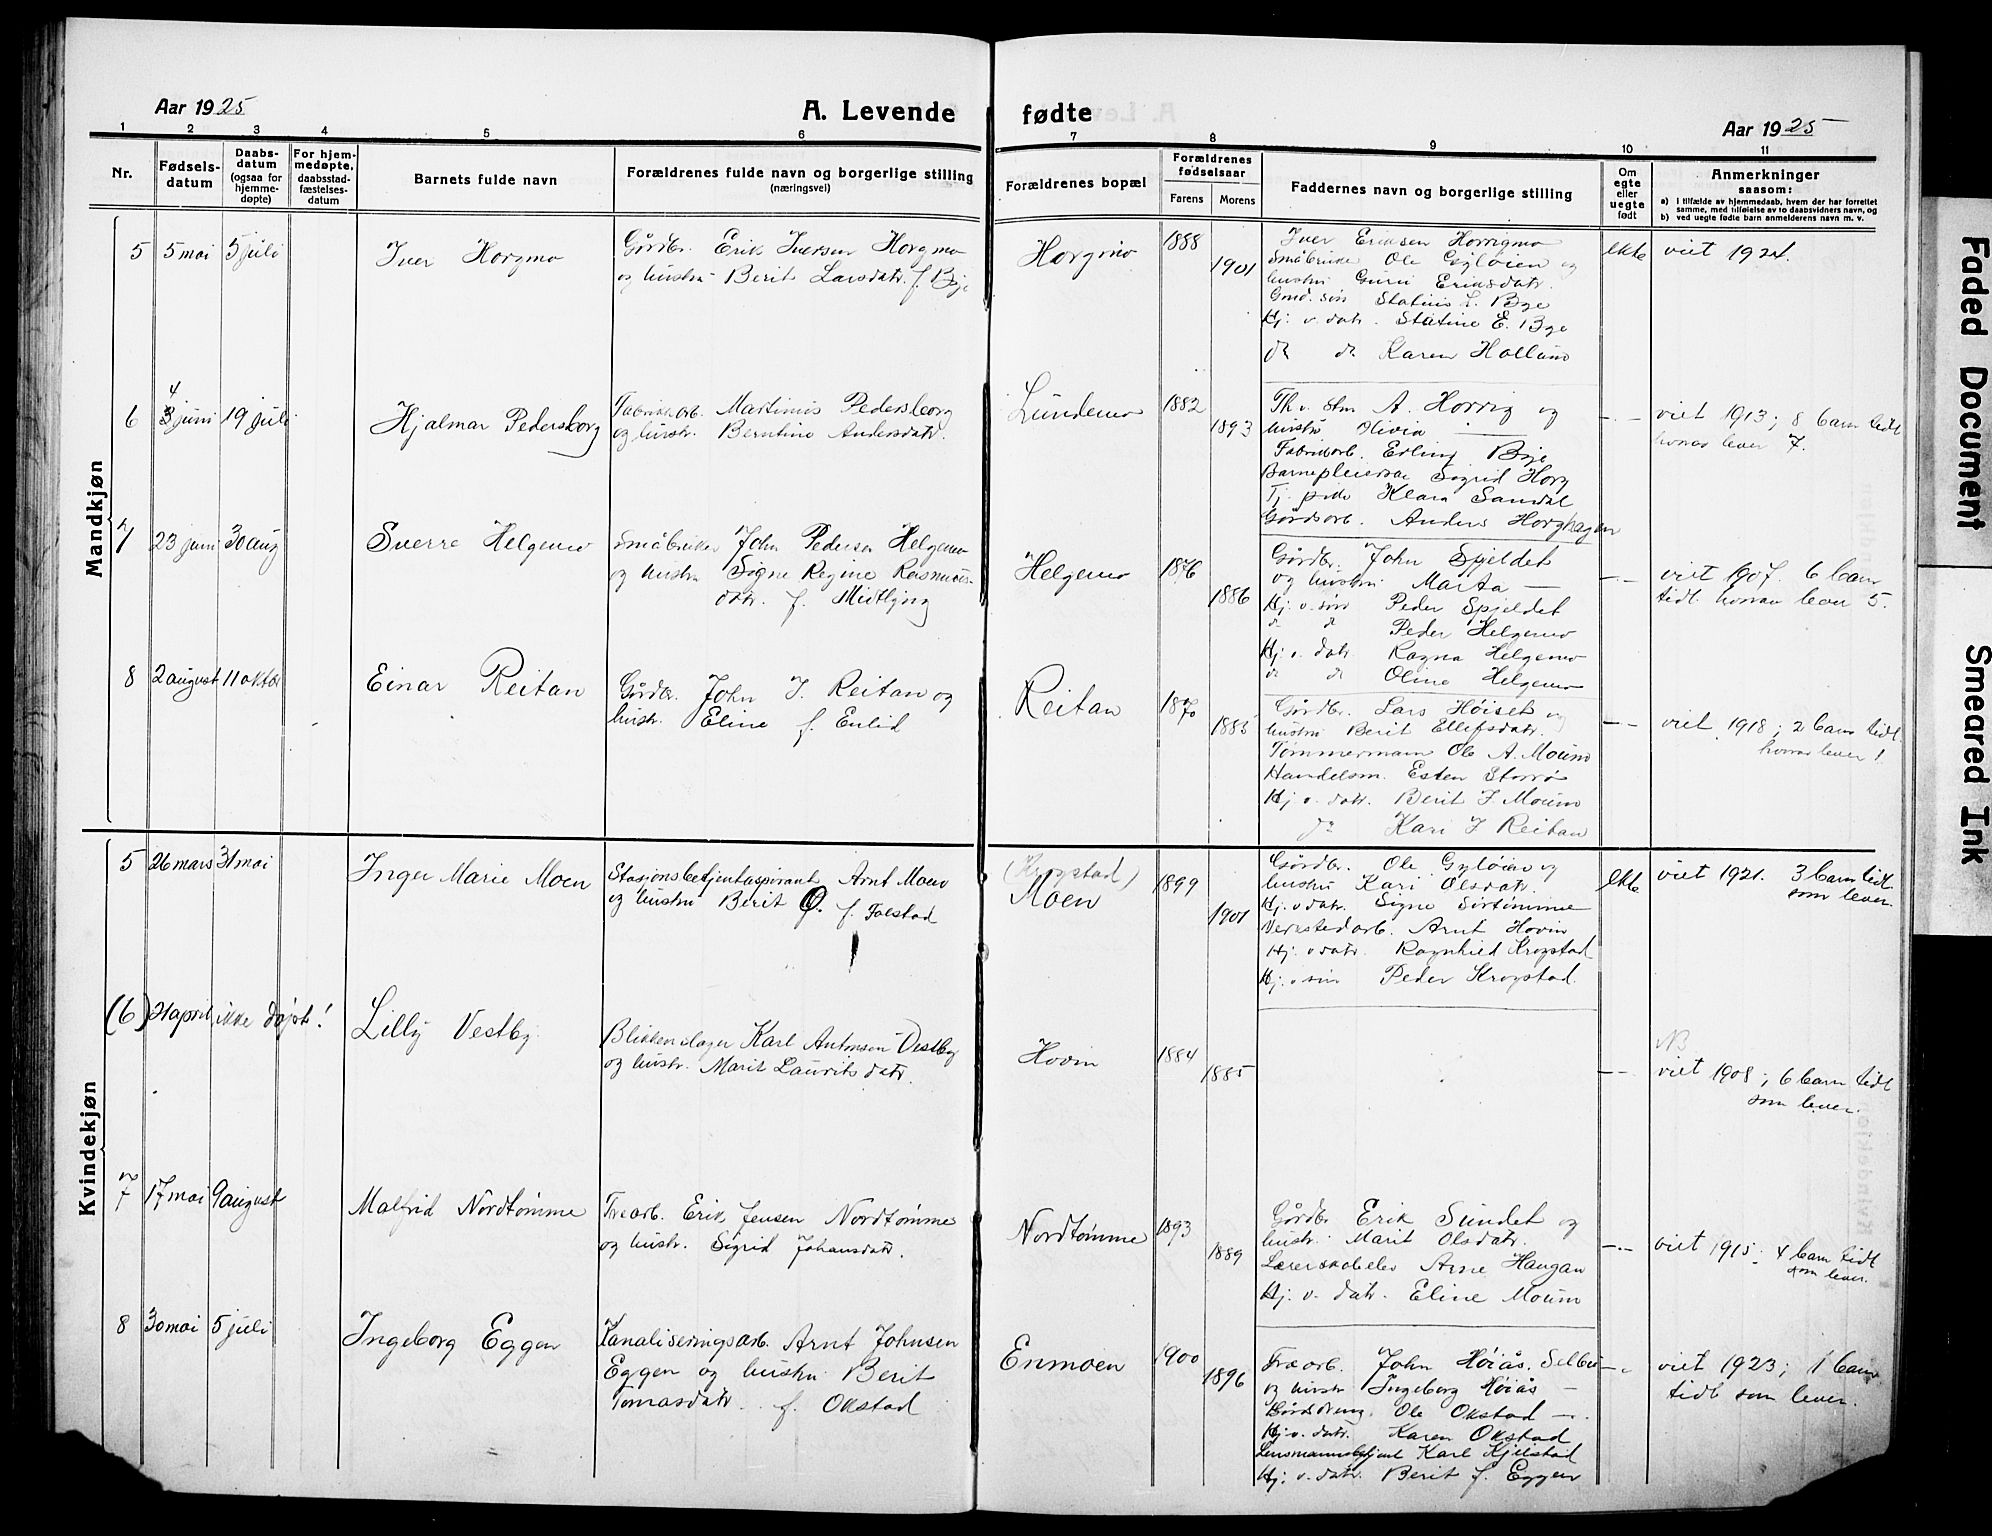 Aar 1925
A. Levende fødte
Aar 1925
1 2 3 4 5 6 7 8 9 10 11
Nr.
Fødsels-
datum
Daabs-
datum
(ogsaa for
hjemme-
døpte)
For hjem-
medøpte,
daabsstad-
fæstelses-
datum
Barnets fulde navn
Forældrenes fulde navn og borgerlige stilling
(næringsvei)
Forældrenes bopæl
Forældrenes
fødselsaar
Farens Morens
Faddernes navn og borgerlige stilling
Om
egte
eller
uegte
født
Anmerkninger
saasom:
a) i tilfælde av hjemmedaab, hvem der har forrettet
samme, med tilføielse av to daabsvidners navn, og
b) ved uegte fødte barn anmelderens navn m. v.
Mandkjøn
5 5 mai 5 juli
Iver Horgmo
Gårdbr. Erik Iversen Horgmo
og hustru Berit Larsdatr. f. Bye
Horgmo
1888
1901
Iver Eriksen Horrigmo
Småbruker Ole Gyløien og
hustru Guru Eriksdatr.
Gmd. søn Statius L. Bye
Hj. v. datr. Statine E. Bye
do do Karen Hollum
ekte
viet 1924.
6 4
3 juni 19 juli
Hjalmar Pedersborg
Fabrikkarb. Martinus Pedersborg
og hustr. Berntine Andersdatr.
Lundemo
1882
1893
A. Horrig og
hustru Olivia —
Fabrikarb. Erling Bye
Barnepleierske Sigrid Horg
Tj. pike Klara Sandal
Gårdsarb. Anders Horghagen
— —
viet 1913; 8 barn tidl
hvorav lever 7.
7 23 juni 30 aug
Sverre Helgemo
Småbruker John Pedersen Helgemo
og hustru Signe Regine Rasmus-
datr. f. Midtbyng
Helgemo
1876
1886
Gårdbr. John Spjeldet
og hustru Marta —
Hj. v. søn Peder Spjeldet
do do Peder Helgemo
Hj. v. datr. Ragna Helgemo
do do Oline Helgemo
— —
viet 1907. 6 barn
tidl. hvorav lever 5.
8 2 august 11 oktbr
Einar Reitan
Gårdbr. John J. Reitan og
hustr. Eline f. Enlid
Reitan
1870
1885
Gårdbr. Lars Høiset og
hustru Berit Ellefsdatr.
Tømmermann Ole A. Moum
Handelsm. Esten Storrø
Hj. v. datr. Berit J. Moum
do Kari J Reitan
— —
viet 1918; 2 barn tidl.
hvorav lever 1
Kvindekjøn
5 26 mars 31 mai
Inger Marie Moen
Stasjonsbetjentaspirant Arnt Moen
og hustru Berit O. f. Folstad
(Krogstad)
Moen
1899
1901
Gårdbr. Ole Gyløien og
hustru Kari Olsdatr.
Hj. v datr. Signe Sørtømme
Verkstedarb. Arnt Hovin
Hj. v datr. Ragnhild Krogstad
Hj. v søn Peder Krogstad.
ekte
viet 1921. 3 barn tidl.
som lever.
(6) 21 april ikke døpt!
Lilly Vestby
Blikkenslager Karl Antonsen Vestby
og hustr. Marit Lauritsdatr.
Hovin
1884
1885
— —
NB
viet 1908; 6 barn tidl
som lever.
7 17 mai 9 august
Malfrid Nordtømme
Træarb. Erik Jensen Nordtømme
og hustr. Sigrid Johansdatr.
Nordtømme
1893
1889
Gårdbr Erik Sundet og
hustr. Marit Olsdatr.
Lærerskoleelev Arne Haugan
Hj. v. datr. Eline Moum
— —
viet 1915. 4 barn tidl
som lever.
8 30 mai 5 juli
Ingeborg Eggen
Kanaliseringsarb. Arnt Johnsen
Eggen og hustru Berit
Tomasdatr. f. Okstad
Enmoen
1900
1896
Træarb. John Høiås, Selbu
og hustr Ingeborg Høiås —
Gårddreng. Ole Okstad —
Hj. v. datr. Karen Okstad
Lensmannsbetjent Karl Kjelstad
Hj. v. datr. Berit f. Eggen
— —
viet 1923; 1 barn
tidl som lever.
Faded Document
Smeared Ink